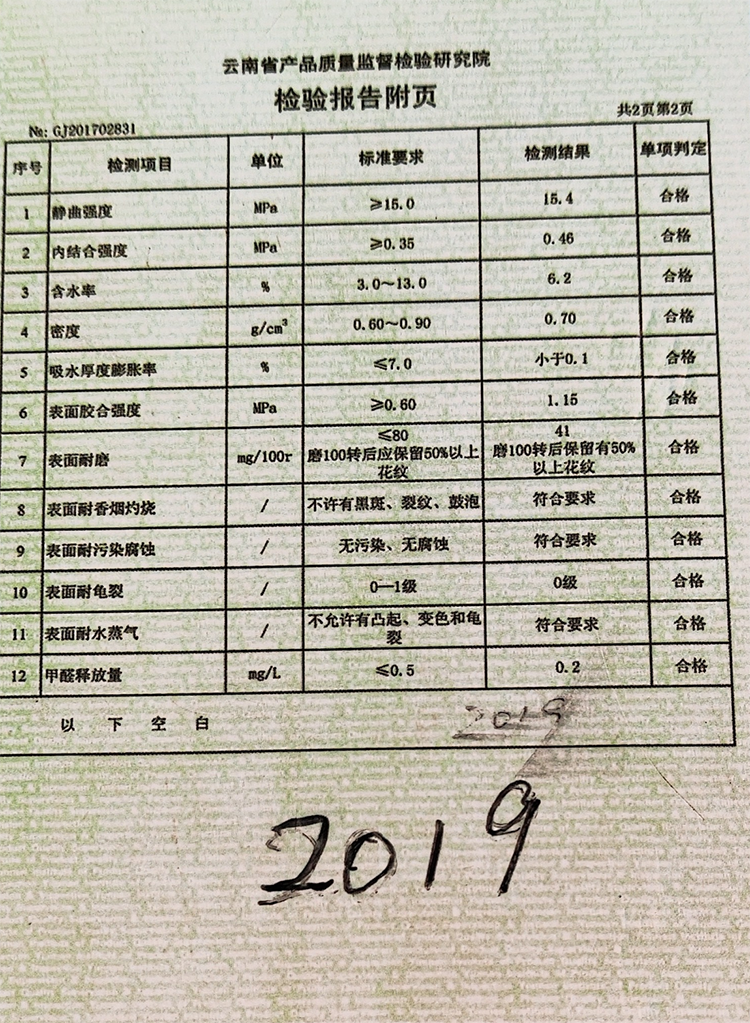 云南省产品质量监督检验研究院
检验报告附页
共2页第2页
№: GJ201702831
序号 检测项目 单位 标准要求 检测结果 单项判定
1 静曲强度 MPa ≥15.0 15.4 合格
2 内结合强度 MPa ≥0.35 0.46 合格
3 含水率 % 3.0～13.0 6.2 合格
4 密度 g/cm³ 0.60～0.90 0.70 合格
5 吸水厚度膨胀率 % ≤7.0 小于0.1 合格
6 表面胶合强度 MPa ≥0.60 1.15 合格
7 表面耐磨 mg/100r ≤80 磨100转后应保留50%以上花纹 41 磨100转后保留有50%以上花纹 合格
8 表面耐香烟灼烧 / 不许有黑斑、裂纹、鼓泡 符合要求 合格
9 表面耐污染腐蚀 / 无污染、无腐蚀 符合要求 合格
10 表面耐龟裂 / 0—1级 0级 合格
11 表面耐水蒸气 / 不允许有凸起、变色和龟裂 符合要求 合格
12 甲醛释放量 mg/L ≤0.5 0.2 合格
以下空白
2019
2019